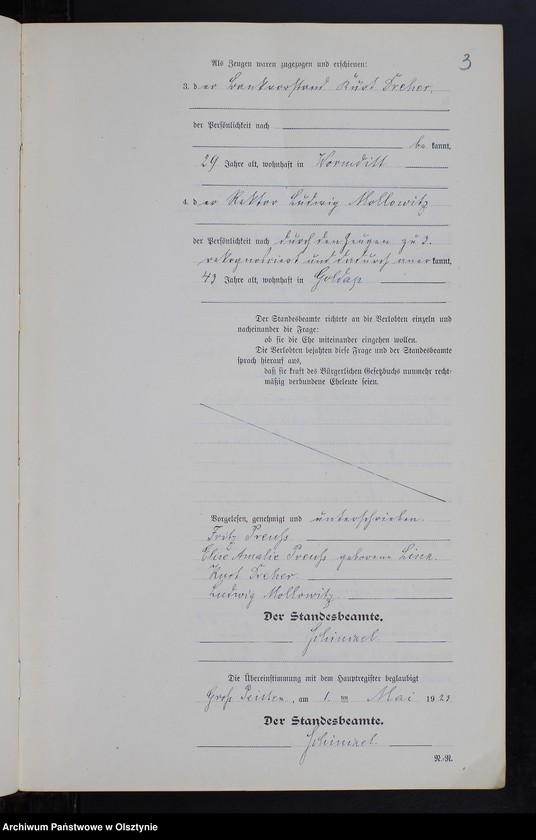 3
Als Zeugen waren zugezogen und erschienen:
3. der Bankvorstand Kurt Dreher,
der Persönlichkeit nach
be kannt,
29 Jahre alt, wohnhaft in Wormditt
4. der Rektor Ludwig Mollowitz
der Persönlichkeit nach durch den Zeugen zu 3.
rekognosciert und dadurch aner kannt,
43 Jahre alt, wohnhaft in Goldap
Der Standesbeamte richtete an die Verlobten einzeln und
nacheinander die Frage:
ob sie die Ehe miteinander eingehen wollen.
Die Verlobten bejahten diese Frage und der Standesbeamte
sprach hierauf aus,
daß sie kraft des Bürgerlichen Gesetzbuchs nunmehr recht-
mäßig verbundene Eheleute seien.
Vorgelesen, genehmigt und unterschrieben.
Fritz Preuß
Elise Amalie Preuß geborene
Kurt Dreher
Ludwig Mollowitz
Der Standesbeamte.
Schimmel.
Die Übereinstimmung mit dem Hauptregister beglaubigt
Groß Peisten, am 1. ten Mai 1923
Der Standesbeamte.
Schimmel.
N.-R.
Archiwum Państwowe w Olsztynie